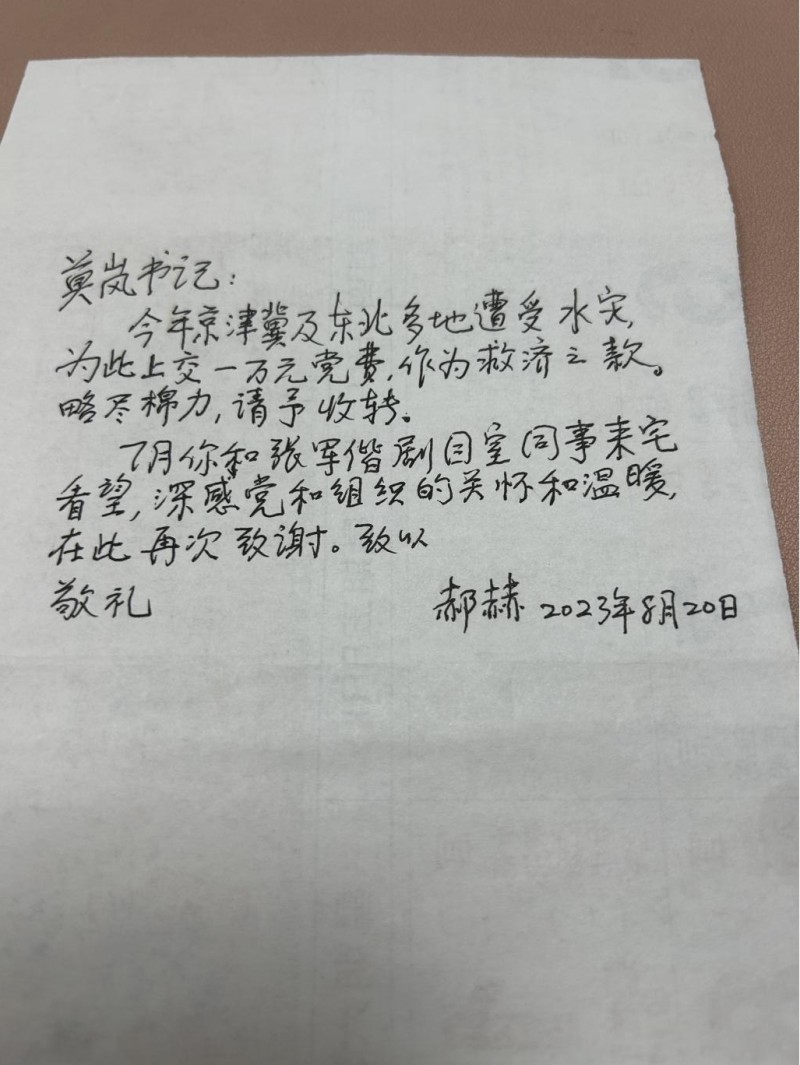 莫岚书记：
今年京津冀及东北多地遭受水灾，
为此上交一万元党费，作为救济之款。
略尽棉力，请予收转。
7月你和张军偕剧目室同事来宅
看望，深感党和组织的关怀和温暖，
在此再次致谢。致以
敬礼 郝赫 2023年8月20日